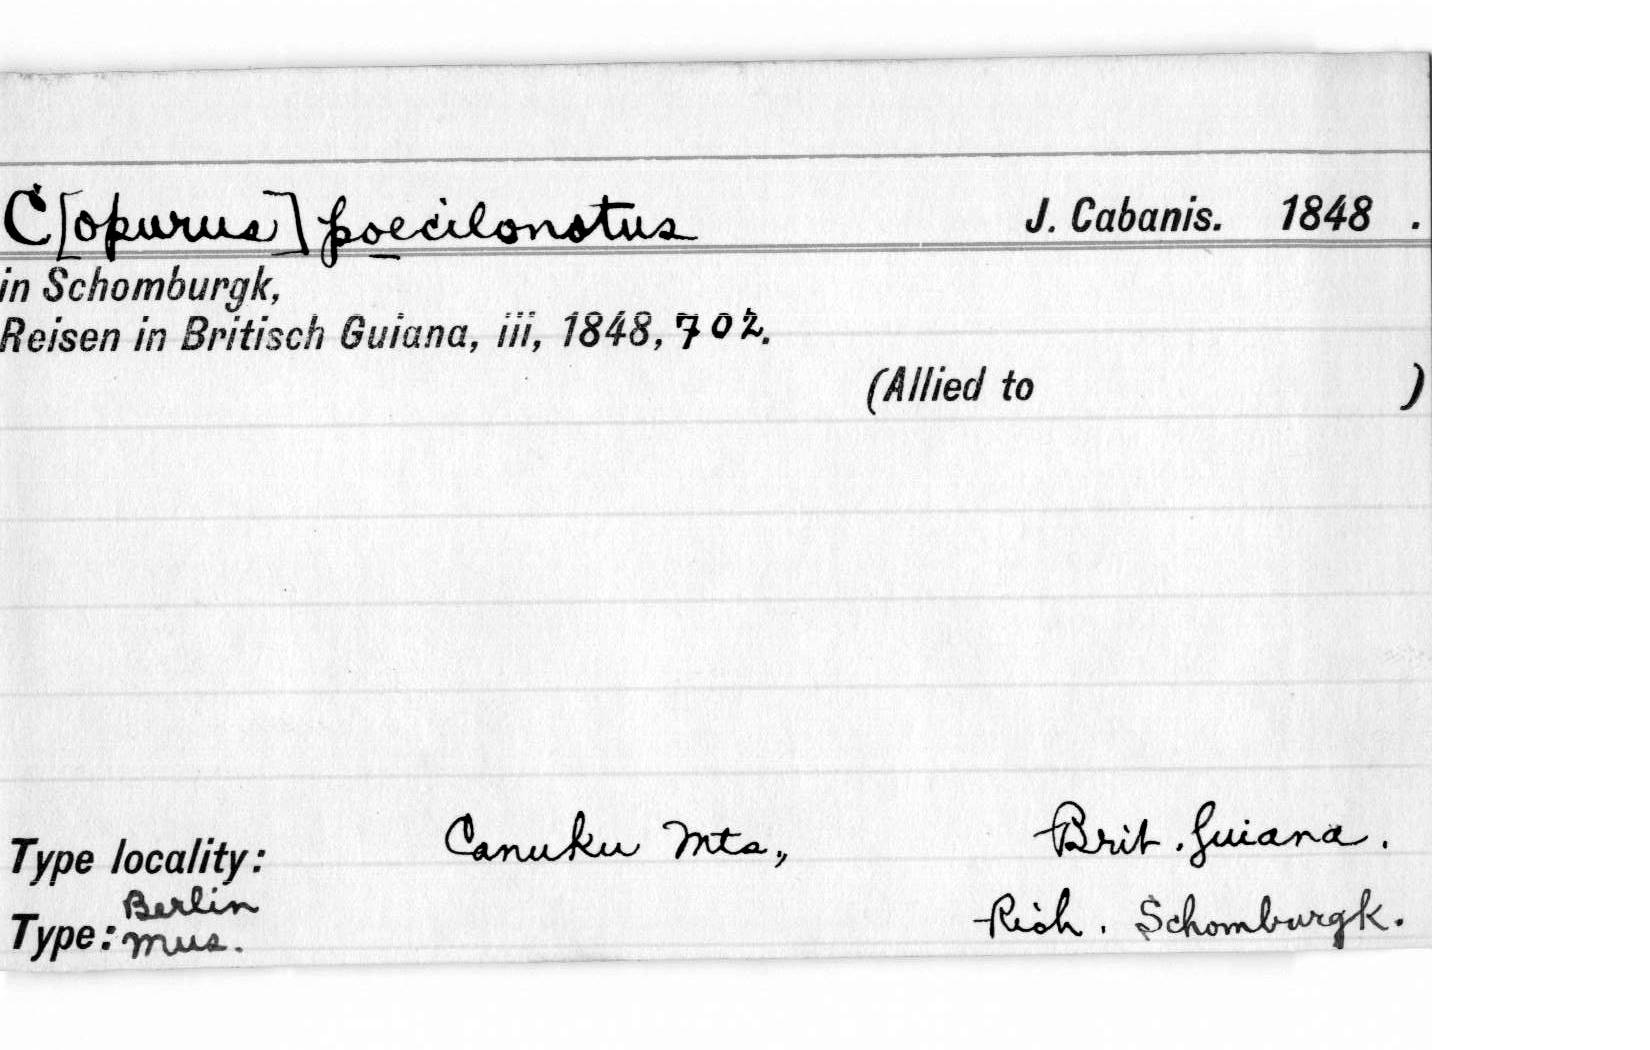 C[opurus] poecilonotus J. Cabanis. 1848 .
in Schomburgk,
Reisen in Britisch Guiana, iii, 1848, 702.
(Allied to )
Type locality: Canuku Mts., Brit. Guiana.
Type: Berlin Mus. Rich. Schomburgk.